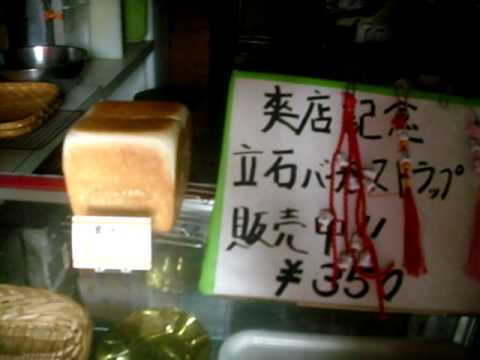 来店記念
立石バナナストラップ
販売中!!
¥350